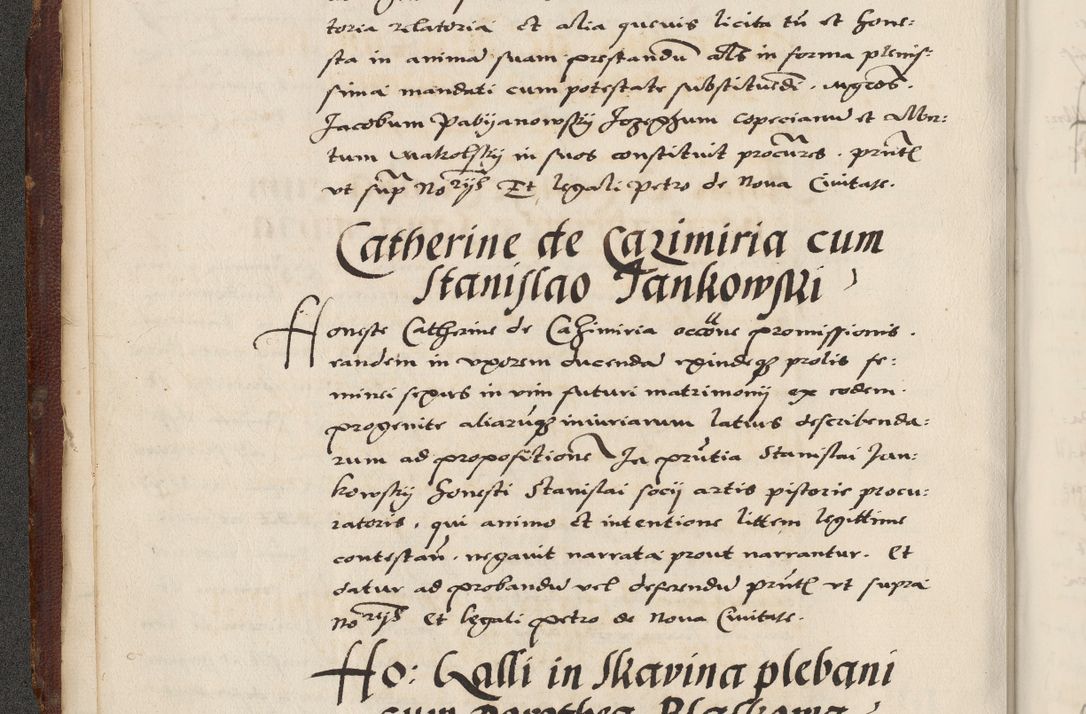 toria relatoria et alia quevis licita tn̄ et hone:
sta in anima suam prestandū als in forma plenis:
simai mandati cum potestate substituēdi. mgcos.
Jacobum Pabijanowskij Jozephum copecianū et Alber:
tum Makolskij in suos constituit procures. prntꝭ
ut sup Norijs Et legali Petro de Nova Civitate.
Catherine de Cazimiria cum
Stanislao Jankowski
Honeste Catherine de Cazimiria occōne promissionis.
eandem in uxorem ducendā exindeqꝫ prolis fe:
minei sexus in vim futuri matrimonij ex eodem.
progenite aliarūqꝫ iniuriarum latius describenda:
rum ad propositionē In prn̄tia Stanislai Jan:
kowskij honesti Stanislai socij artis pistorie procu:
ratoris, qui animo et intentione littem legittime
contestan̄. negavit narrata prout narrantur. Et
datur ad probandū vel deferendū prntꝭ ut supra
Norijs Et legali Petro de Nova Civitate.
Ho: Galli in Skavina plebani
cum Dorothea